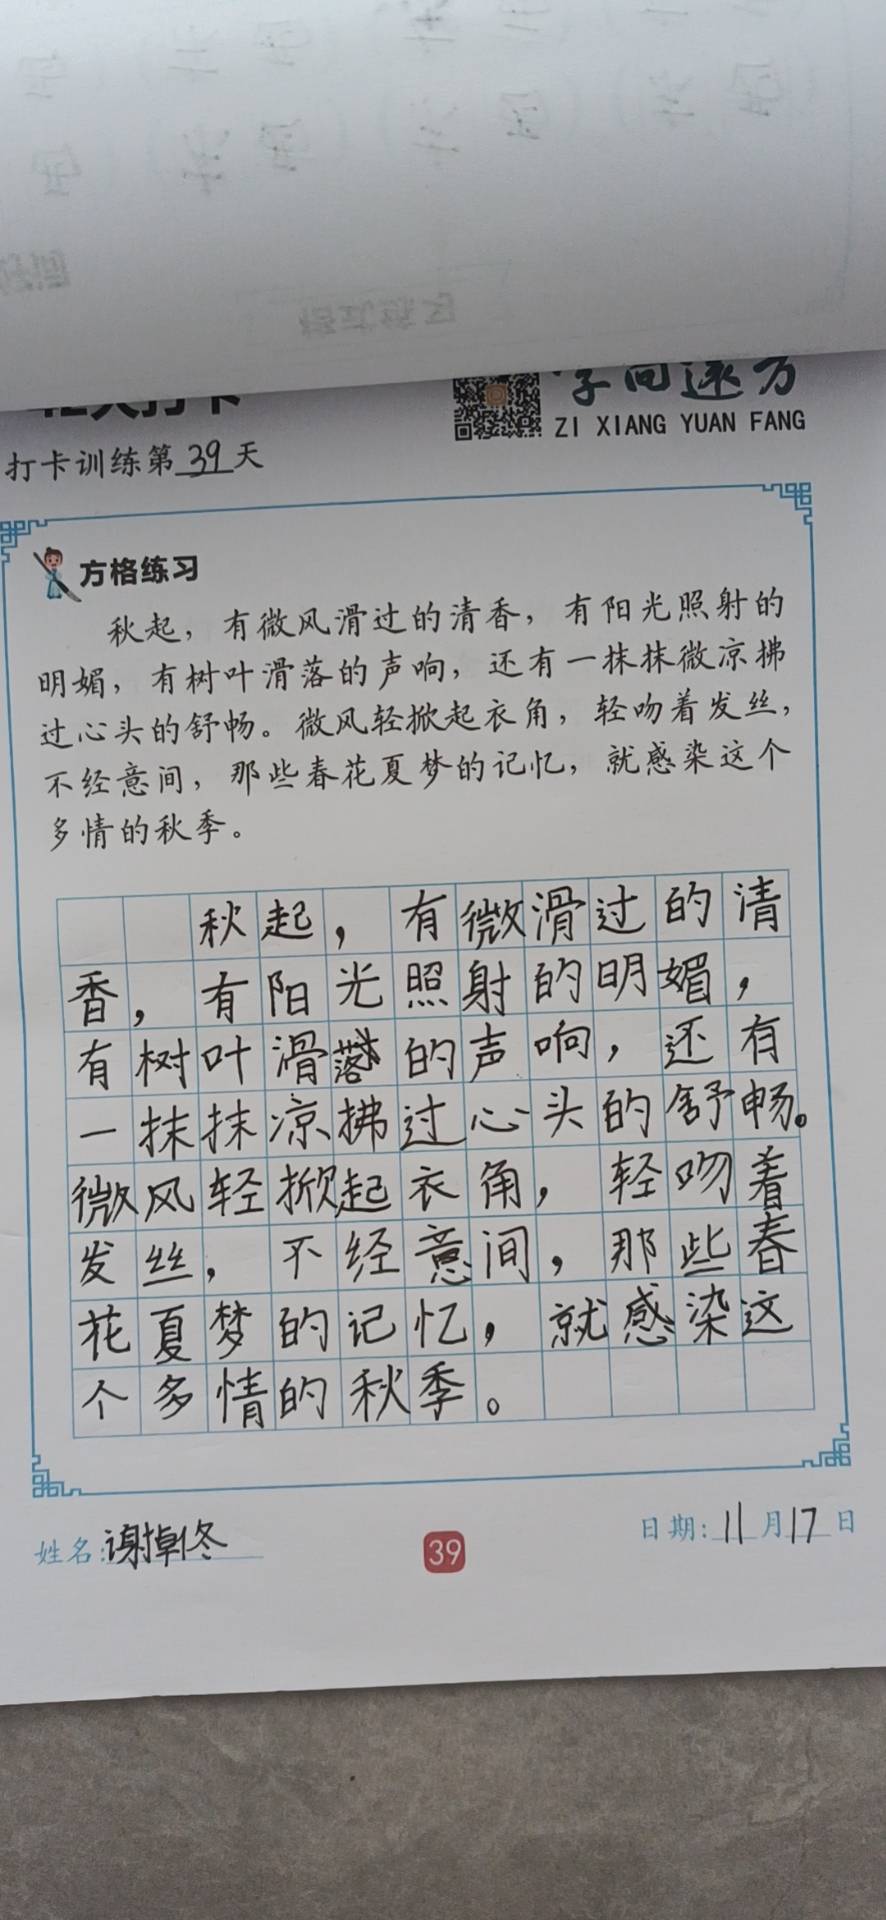 字向远方
ZI XIANG YUAN FANG
打卡训练第39天
方格练习
秋起，有微风滑过的清香，有阳光照射的
明媚，有树叶滑落的声响，还有一抹抹微凉拂
过心头的舒畅。微风轻掀起衣角，轻吻着发丝，
不经意间，那些春花夏梦的记忆，就感染这个
多情的秋季。
秋起，有微滑过的清
香，有阳光照射的明媚，
有树叶滑落的声响，还有
一抹抹凉拂过心头的舒畅。
微风轻掀起衣角，轻吻着
发丝，不经意间，那些春
花夏梦的记忆，就感染这
个多情的秋季。
姓名：谢掉冬
39
日期：11月17日